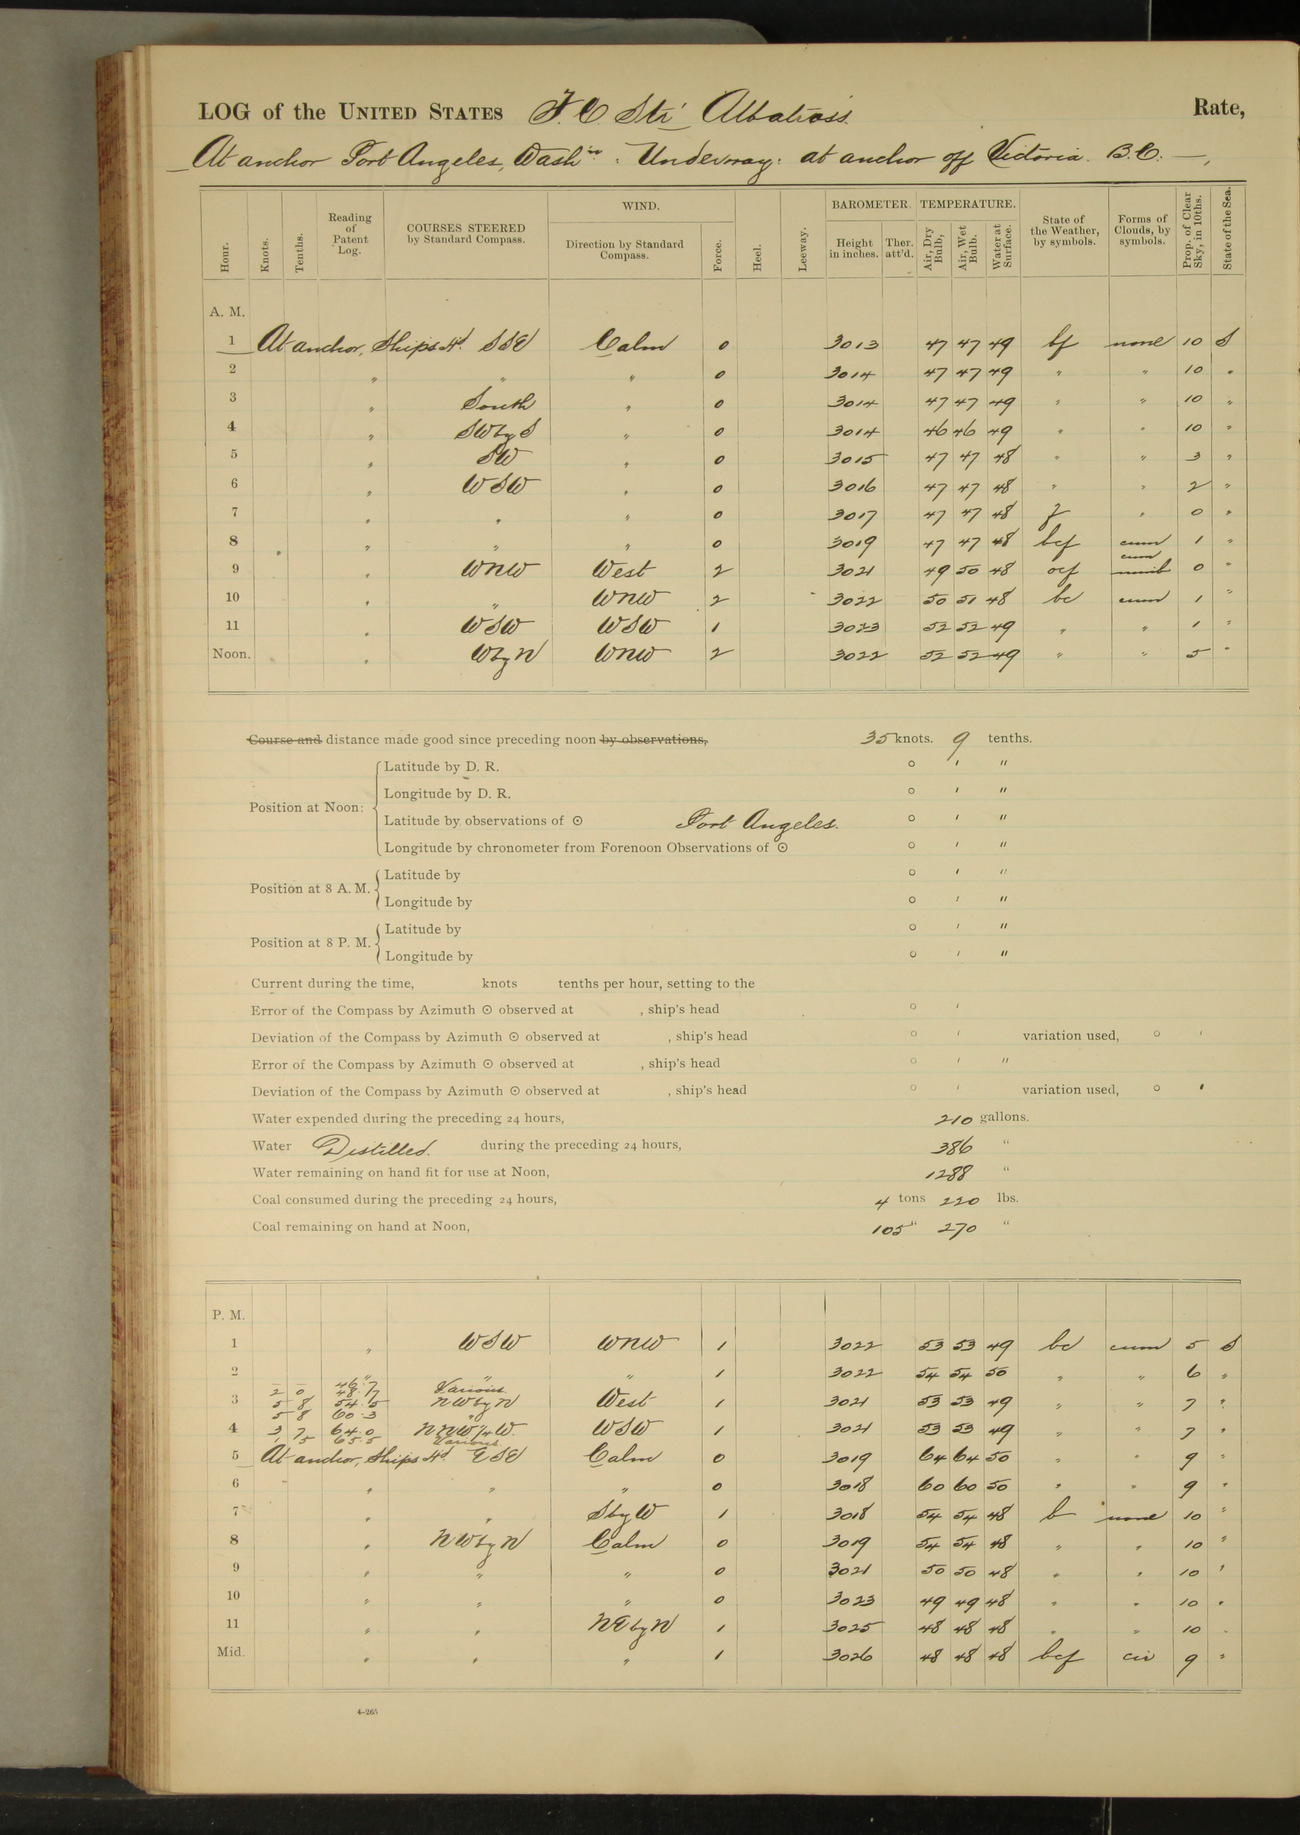 LOG of the UNITED STATES F. C. Str Albatross Rate,
At anchor Port Angeles, Washn : Underway: at anchor off Victoria. B.C. —,
Hour. Knots. Tenths. Reading of Patent Log. COURSES STEERED by Standard Compass. WIND. Direction by Standard Compass. Force. Heel. Leeway. BAROMETER. Height in inches. Ther. att'd. TEMPERATURE. Air, Dry Bulb, Air, Wet Bulb. Water at Surface. State of the Weather, by symbols. Forms of Clouds, by symbols. Prop. of Clear Sky, in 10ths. State of the Sea.
A. M.
1 At anchor, Ships Hd. SSE Calm 0 3013 47 47 49 bf none 10 S
2 " " " 0 3014 47 47 49 " " 10 "
3 " South " 0 3014 47 47 49 " " 10 "
4 " SWbyS " 0 3014 46 46 49 " " 10 "
5 " SW " 0 3015 47 47 48 " " 3 "
6 " WSW " 0 3016 47 47 48 " " 2 "
7 " " " 0 3017 47 47 48 f " 0 "
8 " " " 0 3019 47 47 48 bcf cum 1 "
9 " WNW West 2 3021 49 50 48 ocf cum nimb 0 "
10 " " WNW 2 3022 50 51 48 bc cum 1 "
11 " WSW WSW 1 3023 52 52 49 " " 1 "
Noon. " WbyN WNW 2 3022 52 52 49 " " 5 "
Course and distance made good since preceding noon by observations, 35 knots. 9 tenths.
Position at Noon: Latitude by D. R. ° ′ ″
Longitude by D. R. ° ′ ″
Latitude by observations of ☉ Port Angeles. ° ′ ″
Longitude by chronometer from Forenoon Observations of ☉ ° ′ ″
Position at 8 A. M. Latitude by ° ′ ″
Longitude by ° ′ ″
Position at 8 P. M. Latitude by ° ′ ″
Longitude by ° ′ ″
Current during the time, knots tenths per hour, setting to the
Error of the Compass by Azimuth ☉ observed at , ship's head ° ′
Deviation of the Compass by Azimuth ☉ observed at , ship's head ° ′ variation used, ° ′
Error of the Compass by Azimuth ☉ observed at , ship's head ° ′ ″
Deviation of the Compass by Azimuth ☉ observed at , ship's head ° ′ variation used, ° ′
Water expended during the preceding 24 hours, 210 gallons.
Water Distilled. during the preceding 24 hours, 386 "
Water remaining on hand fit for use at Noon, 1288 "
Coal consumed during the preceding 24 hours, 4 tons 220 lbs.
Coal remaining on hand at Noon, 105 " 270 "
P. M.
1 " WSW WNW 1 3022 53 53 49 bc cum 5 S
2 " " " 1 3022 54 54 50 " " 6 "
– – 46.7
2 0 48.7 Various
3 5 8 54.5 NWbyN West 1 3021 53 53 49 " " 7 "
5 8 60.3 "
4 3 7 64.0 NNW¼W. WSW 1 3021 53 53 49 " " 7 "
1 5 65.5 Various
5 At anchor, Ships Hd. ESE Calm 0 3019 64 64 50 " " 9 "
6 " " " 0 3018 60 60 50 " " 9 "
7 " " SbyW 1 3018 54 54 48 b none 10 "
8 " NWbyN Calm 0 3019 54 54 48 " " 10 "
9 " " " 0 3021 50 50 48 " " 10 "
10 " " " 0 3023 49 49 48 " " 10 "
11 " " NEbyN 1 3025 48 48 48 " " 10 "
Mid. " " " 1 3026 48 48 48 bcf cir 9 "
4-265